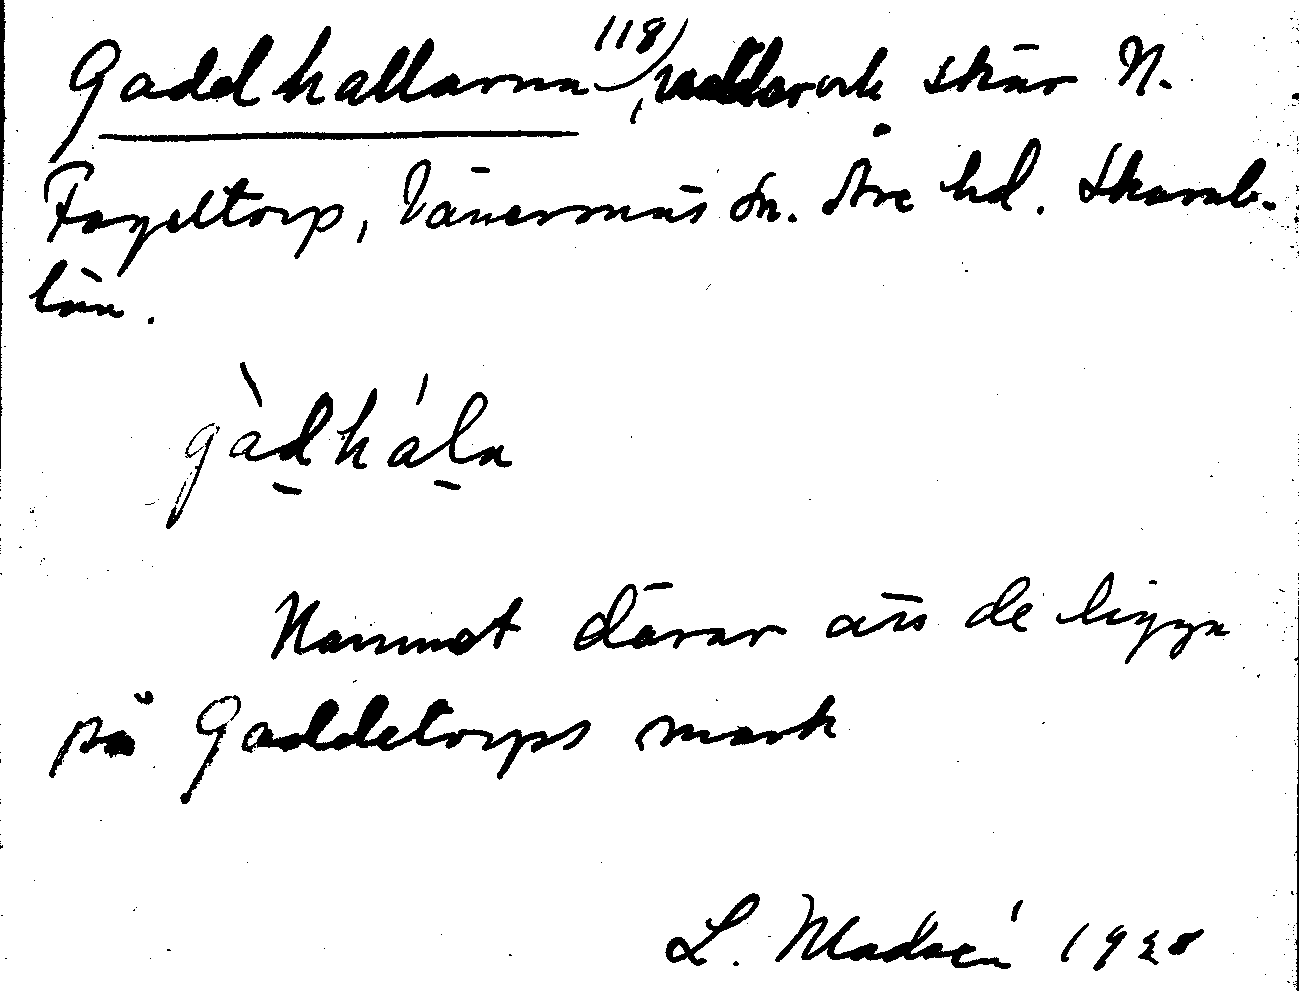 Gaddhallarna 118), och skär N.
Fogeltorp, Vänersnäs sn. Åse hd. Skarab.
län.
gàdhála
Namnet därav att de ligga
på Gaddetorps mark
L. Madsén 1928